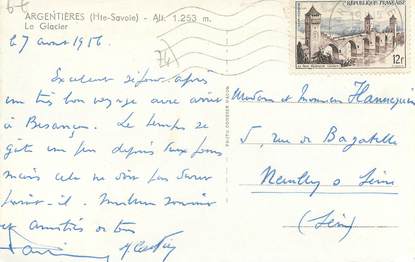 ARGENTIÈRES (Hte-Savoie) - Alt. 1.253 m.
Le Glacier
le 7 avril 1956
RÉPUBLIQUE FRANÇAISE
12F
Excellent séjour après
un très bon voyage avec arrêt
à Besançon. Le temps se
gâte un peu depuis deux jours
mais cela ne doit pas durer
paraît-il. Meilleur souvenir
et amitiés de tous
Madame et Monsieur Hannequin
5, rue de Bagatelle
Neuilly s Seine
(Seine)